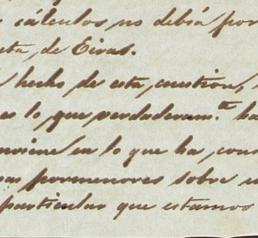 cálculos no debía por
de Eiras.
hecho de esta cuestion,
lo que verdaderam.te ha
en lo que ha, con
pormenores sobre
particular que estamos